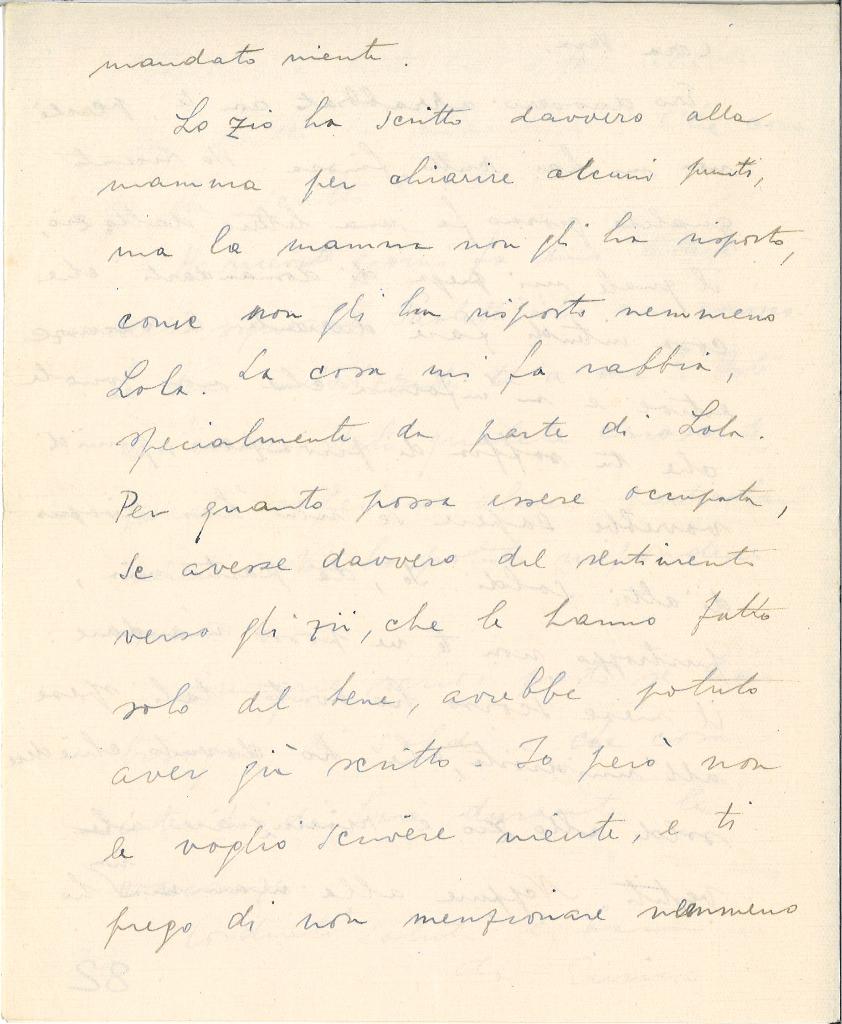 mandato niente.
Lo zio ha scritto davvero alla
mamma per chiarire alcuni punti,
ma la mamma non gli ha risposto,
come non gli ha risposto nemmeno
Lola. La cosa mi fa rabbia,
specialmente da parte di Lola.
Per quanto possa essere occupata,
se avesse davvero del sentimento
verso gli zii, che le hanno fatto
solo del bene, avrebbe potuto
aver già scritto. Io però non
le voglio scrivere niente, e ti
prego di non menzionare nemmeno